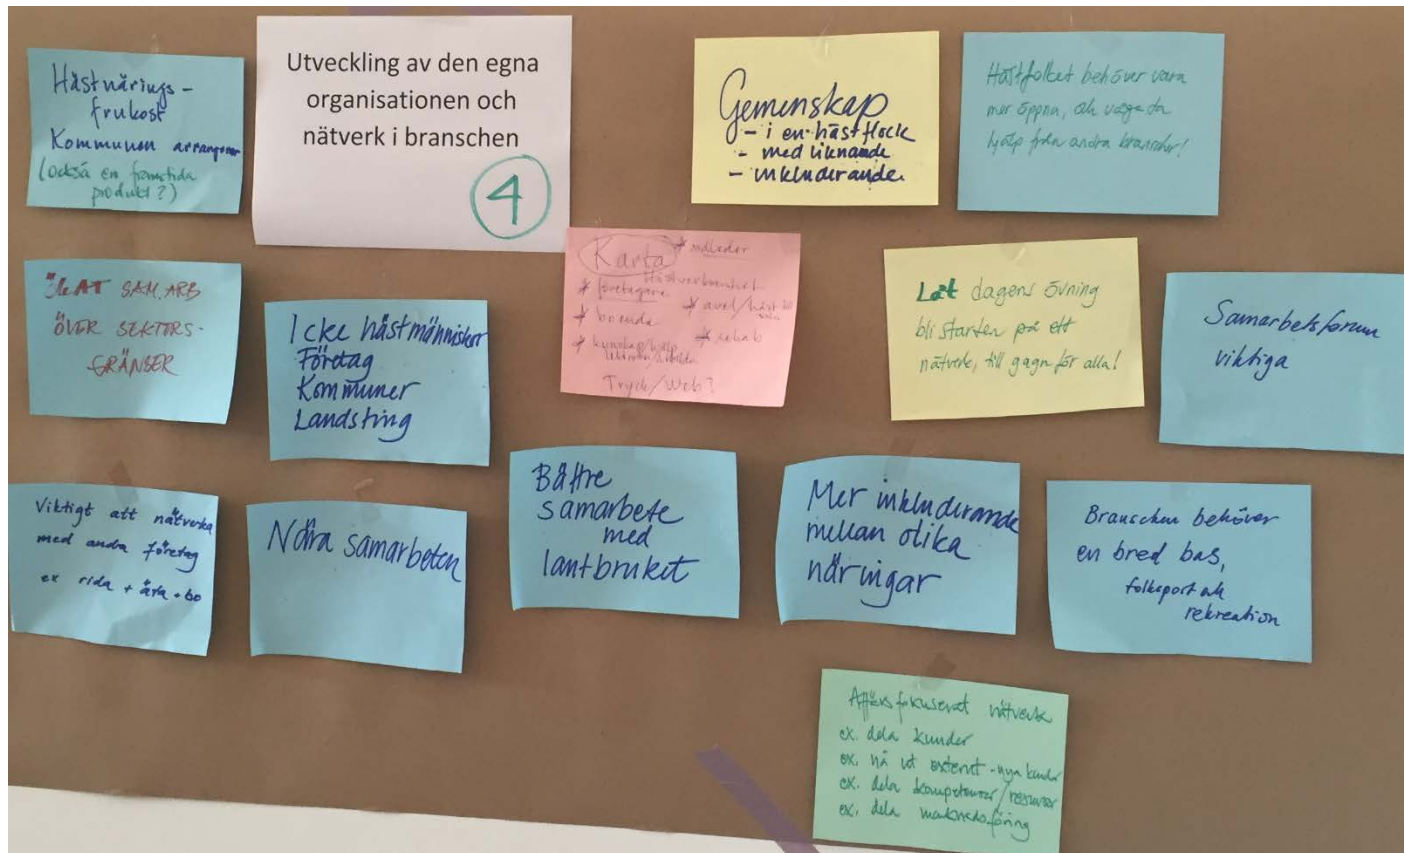 Hästnärings-
frukost
Kommunen arrangerar
(också en framtida
produkt?)
Utveckling av den egna
organisationen och
nätverk i branschen
4
Gemenskap
- i en hästflock
- med liknande
- inkluderande.
Hästfolket behöver vara
mer öppna, och våga ta
hjälp från andra branscher!
ÖKAT SAM.ARB
ÖVER SEKTORS-
GRÄNSER
Icke hästmänniskor
Företag
Kommuner
Landsting
Karta
* ridleder
Hästverksamhet
* företagare
* avel/häst
* boende
* rehab
* kunskap/hjälp
Tryck/Web?
Låt dagens övning
bli starten på ett
nätverk, till gagn för alla!
Samarbetsforum
viktiga
Viktigt att nätverka
med andra företag
ex rida + äta + bo
Nära samarbeten
Bättre
samarbete
med
lantbruket
Mer inkluderande
mellan olika
näringar
Branschen behöver
en bred bas,
folksport och
rekreation
Affärsfokuserat nätverk
ex. dela kunder
ex. nå ut externt - nya kunder
ex. dela kompetenser/resurser
ex. dela marknadsföring